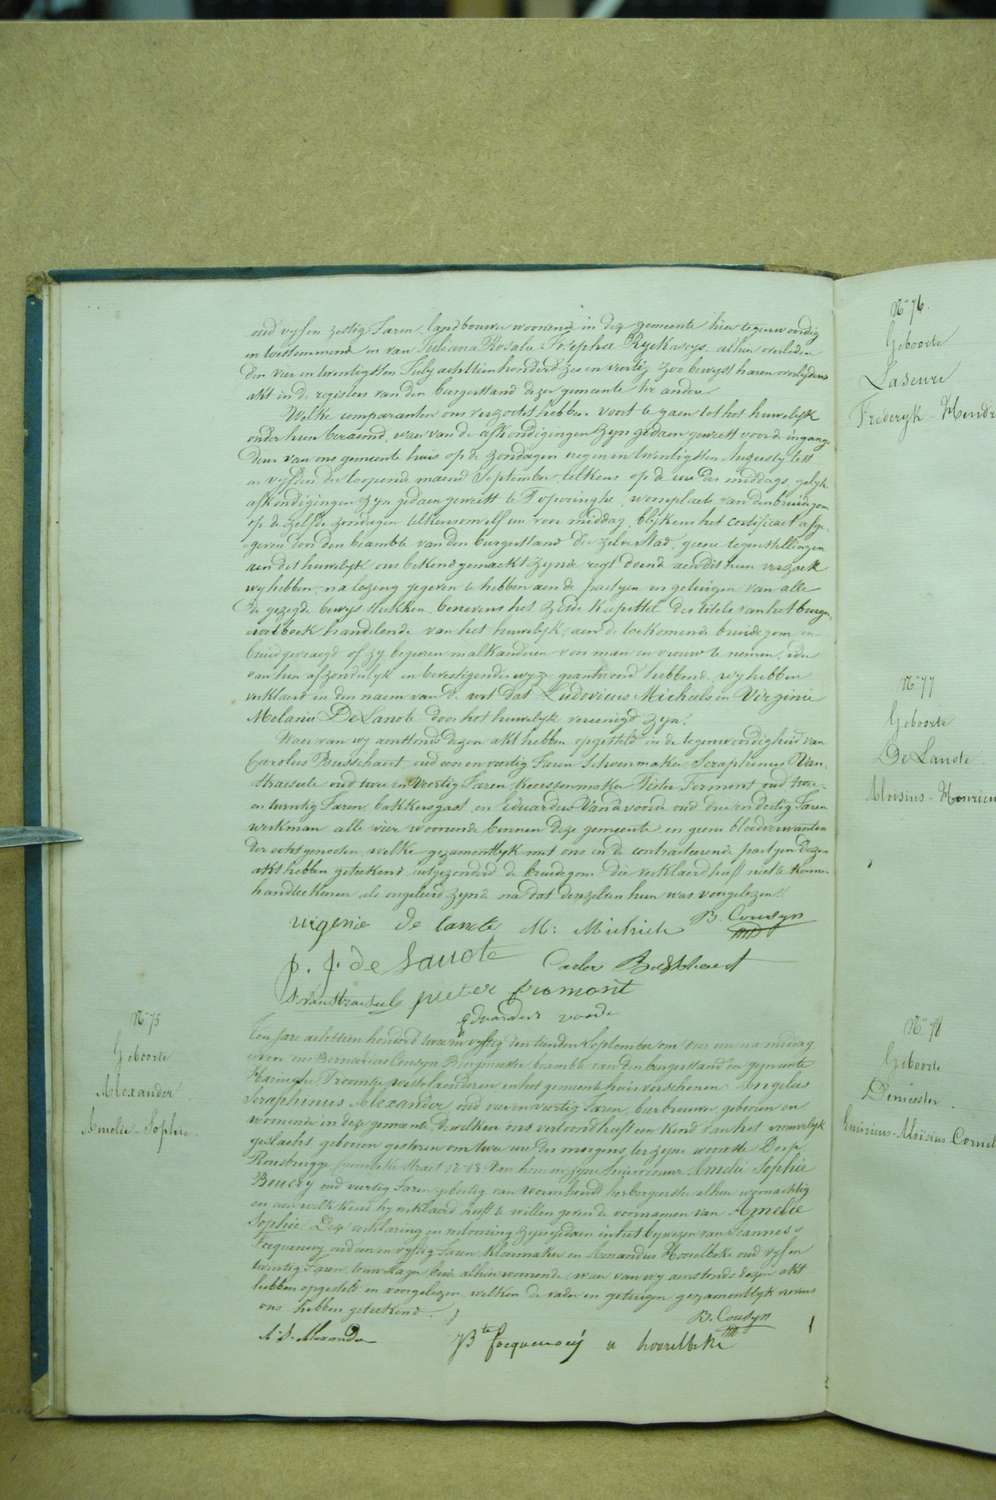 oud vyf en zestig Jaren, landbouwer woonende in deze gemeente hier tegenwoordig
en toestemmende en van Rosalie Josephe Ryckewys, alhier overleden
den vier en twintigsten July achttien honderd zes en veertig zoo bewyst haren overlydens
akt in de registers van den burgerstand dezer gemeente ter andere
Welke comparanten ons verzocht hebben voort te gaen tot het huwelyk
onder hun beraemd, waer van de afkondigingen zyn gedaen geweest voor de ingang
deur van ons gemeente huis op de zondagen negen en twintigsten Augusty lest
en vyfden der loopende maend September telkens op de ure des middags, gelyk
afkondigingen zyn gedaen geweest te Poperinghe, woonplaets van den bruidegom
op de zelfde zondagen telkens om elf uren voor middag, blykens het certificaet afge-
geven door den beambte van den burgerstand der zelve Stad, geene tegenstellingen
aen dit huwelyk ons bekend gemaekt zynde, regt doende aen dit hun verzoek
wy hebben, na lezing gegeven te hebben aen de partyen en getuigen van alle
de gezegde bewys stukken, benevens het zesde kapittel des titels van het burger-
wetboek handelende van het huwelyk, aen de toekomende bruidegom en
bruid gevraegd of zy begeeren malkanderen voor man en vrouw te nemen, ider
van hun afzonderlyk en bevestigender wyze geantwoord hebbende, wy hebben
verklaerd in den naem van de wet dat Ludovicus Michiels en Virginie
Melanie De Lanote door het huwelyk vereenigd zyn.
Waer van wy aenstonds dezen akt hebben opgesteld in de tegenwoordigheid van
Carolus Busschaert oud een en veertig Jaren Schoenmaker, Seraphinus Van
Straeseele oud twee en veertig Jaren keerssenmaker Pieter Fermont oud twee
en twintig Jaren, bakkersgast, en Eduardus Vandevoorde oud drie en dertig Jaren
werkman alle vier woonende binnen deze gemeente en geene bloedverwanten
der echtgenooten, welke gezamentlyk met ons en de contracteerende partyen dezen
akt hebben geteekend, uitgezonderd de bruidegom die verklaerd heeft niet te kunnen
handteekenen als ongeleerd zynde na dat dezelven hun was voorgelezen.
virgenie de lanote M: Michiels B. Cousyn
p. j. de Lanote Carlos Busschaert
S. van Straeseele pieter fermont
Eduardus voorde
N.o 75
Geboorte
Alexander
Amelie-Sophie.
Ten jare achttien honderd twee en vyftig den tienden September om ure na middag
voor ons Bernardus Cousyn Burgmeester beambte van den burgerstand der gemeente
Haringhe Provintie Westvlaenderen in het gemeente huis verschenen Angelus
Seraphinus Alexander, oud vier en veertig Jaren, bierbrouwer, geboren en
woonende in deze gemeente, dewelken ons vertoond heeft een kind van het vrouwelyk
geslacht geboren gisteren om twee ure des morgens ter zyne woonste Dorp
Rousbrugge van hem en zyne huisvrouwe Amelie Sophie
oud veertig Jaren, herbergierster alhier woonachtig
en aen welk kind hy verklaerd heeft te willen geven de voornamen van Amelie
Sophie. Deze verklaring en vertooning zyn gedaen in het bywezen van Joannes
Focquenoey oud een en vyftig Jaren kleermaker en Amandus Hoorelbeke oud vyf en
twintig Jaren, beide alhier woonende, waer van wy aenstonds dezen akt
hebben opgesteld en voorgelezen, welken de vader en getuigen gezamentlyk nevens
ons hebben geteekend.
B. Cousyn
A. S. Alexander JBte focquenoey a hoorelbeke
N.o 76.
Geboorte
Laseure
Frederyk-Hendri
N.o 77
Geboorte
De Lanote
Aloisius-Henricus
N.o 78
Geboorte
Demeester
Quirinus-Aloisius-Cornel